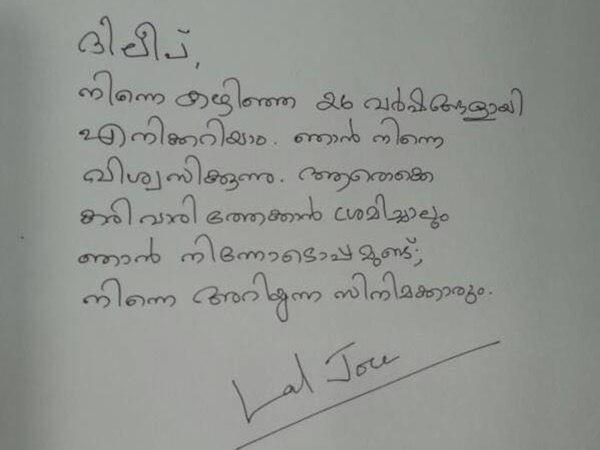 ദിലീപ്,
നിന്നെ കഴിഞ്ഞ 26 വർഷങ്ങളായി
എനിക്കറിയാം. ഞാൻ നിന്നെ
വിശ്വസിക്കുന്നു. ആരൊക്കെ
കരി വാരി ത്തേക്കാൻ ശ്രമിച്ചാലും
ഞാൻ നിന്നോടൊപ്പമുണ്ട്;
നിന്നെ അറിയുന്ന സിനിമക്കാരും.
Lal Jose